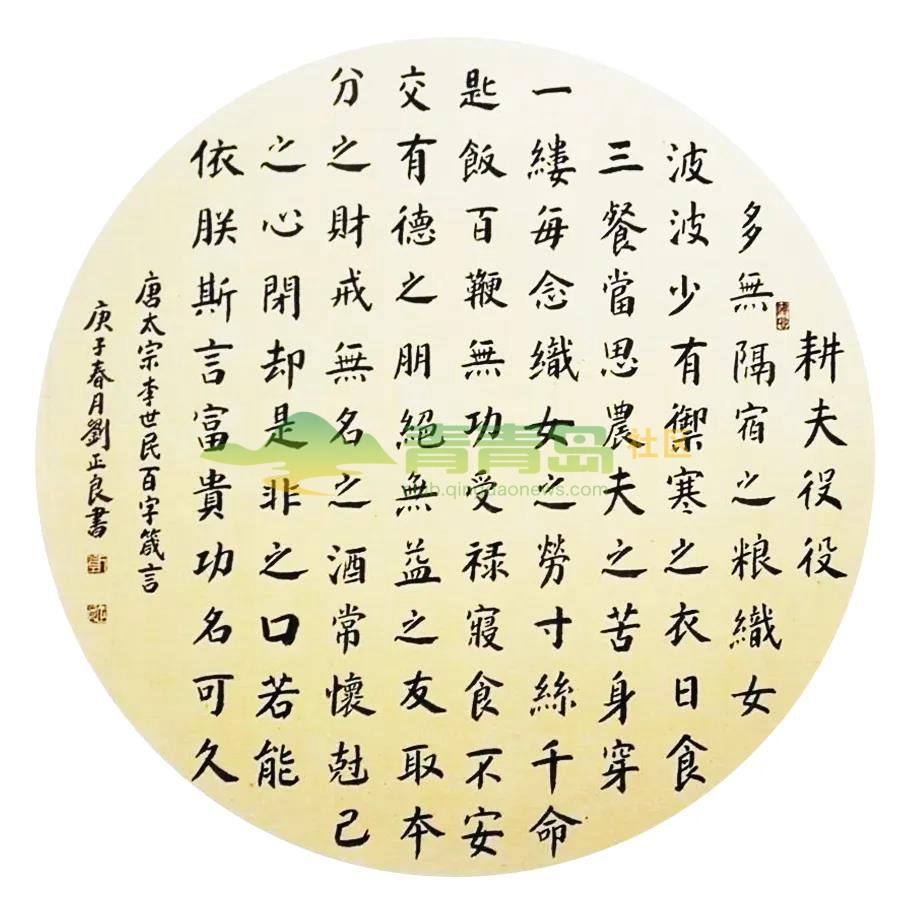 耕夫役役
多無隔宿之粮織女
波波少有禦寒之衣日食
三餐當思農夫之苦身穿
一縷每念織女之勞寸絲千命
匙飯百鞭無功受禄寢食不安
交有德之朋絕無益之友取本
分之財戒無名之酒常懷尅己
之心閉却是非之口若能
依朕斯言富貴功名可久
唐太宗李世民百字箴言
庚子春月劉正良書
青青岛社区
club.qingdaonews.com